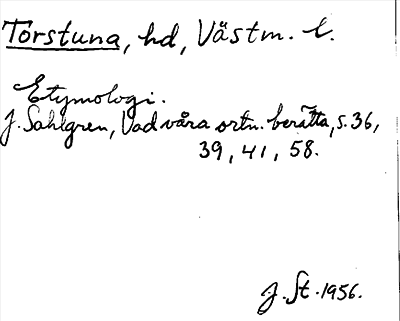 Torstuna, hd, Västm. l.
Etymologi.
J. Sahlgren, Vad våra ortn. berätta, s. 36,
39, 41, 58.
J. St. 1956.